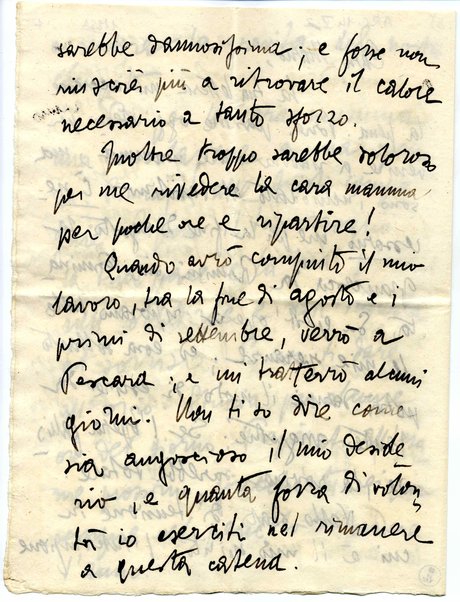 sarebbe dannosissima; e forse non
riuscirei più a ritrovare il calore
necessario a tanto sforzo.
Inoltre troppo sarebbe doloroso
per me rivedere la cara mamma
per poche ore e ripartire!
Quando avrò compiuto il mio
lavoro, tra la fine di agosto e i
primi di settembre, verrò a
Pescara; e mi tratterrò alcuni
giorni. Non ti so dire come
sia angoscioso il mio deside
rio, e quanta forza di volon
tà io eserciti nel rimanere
a questa catena.